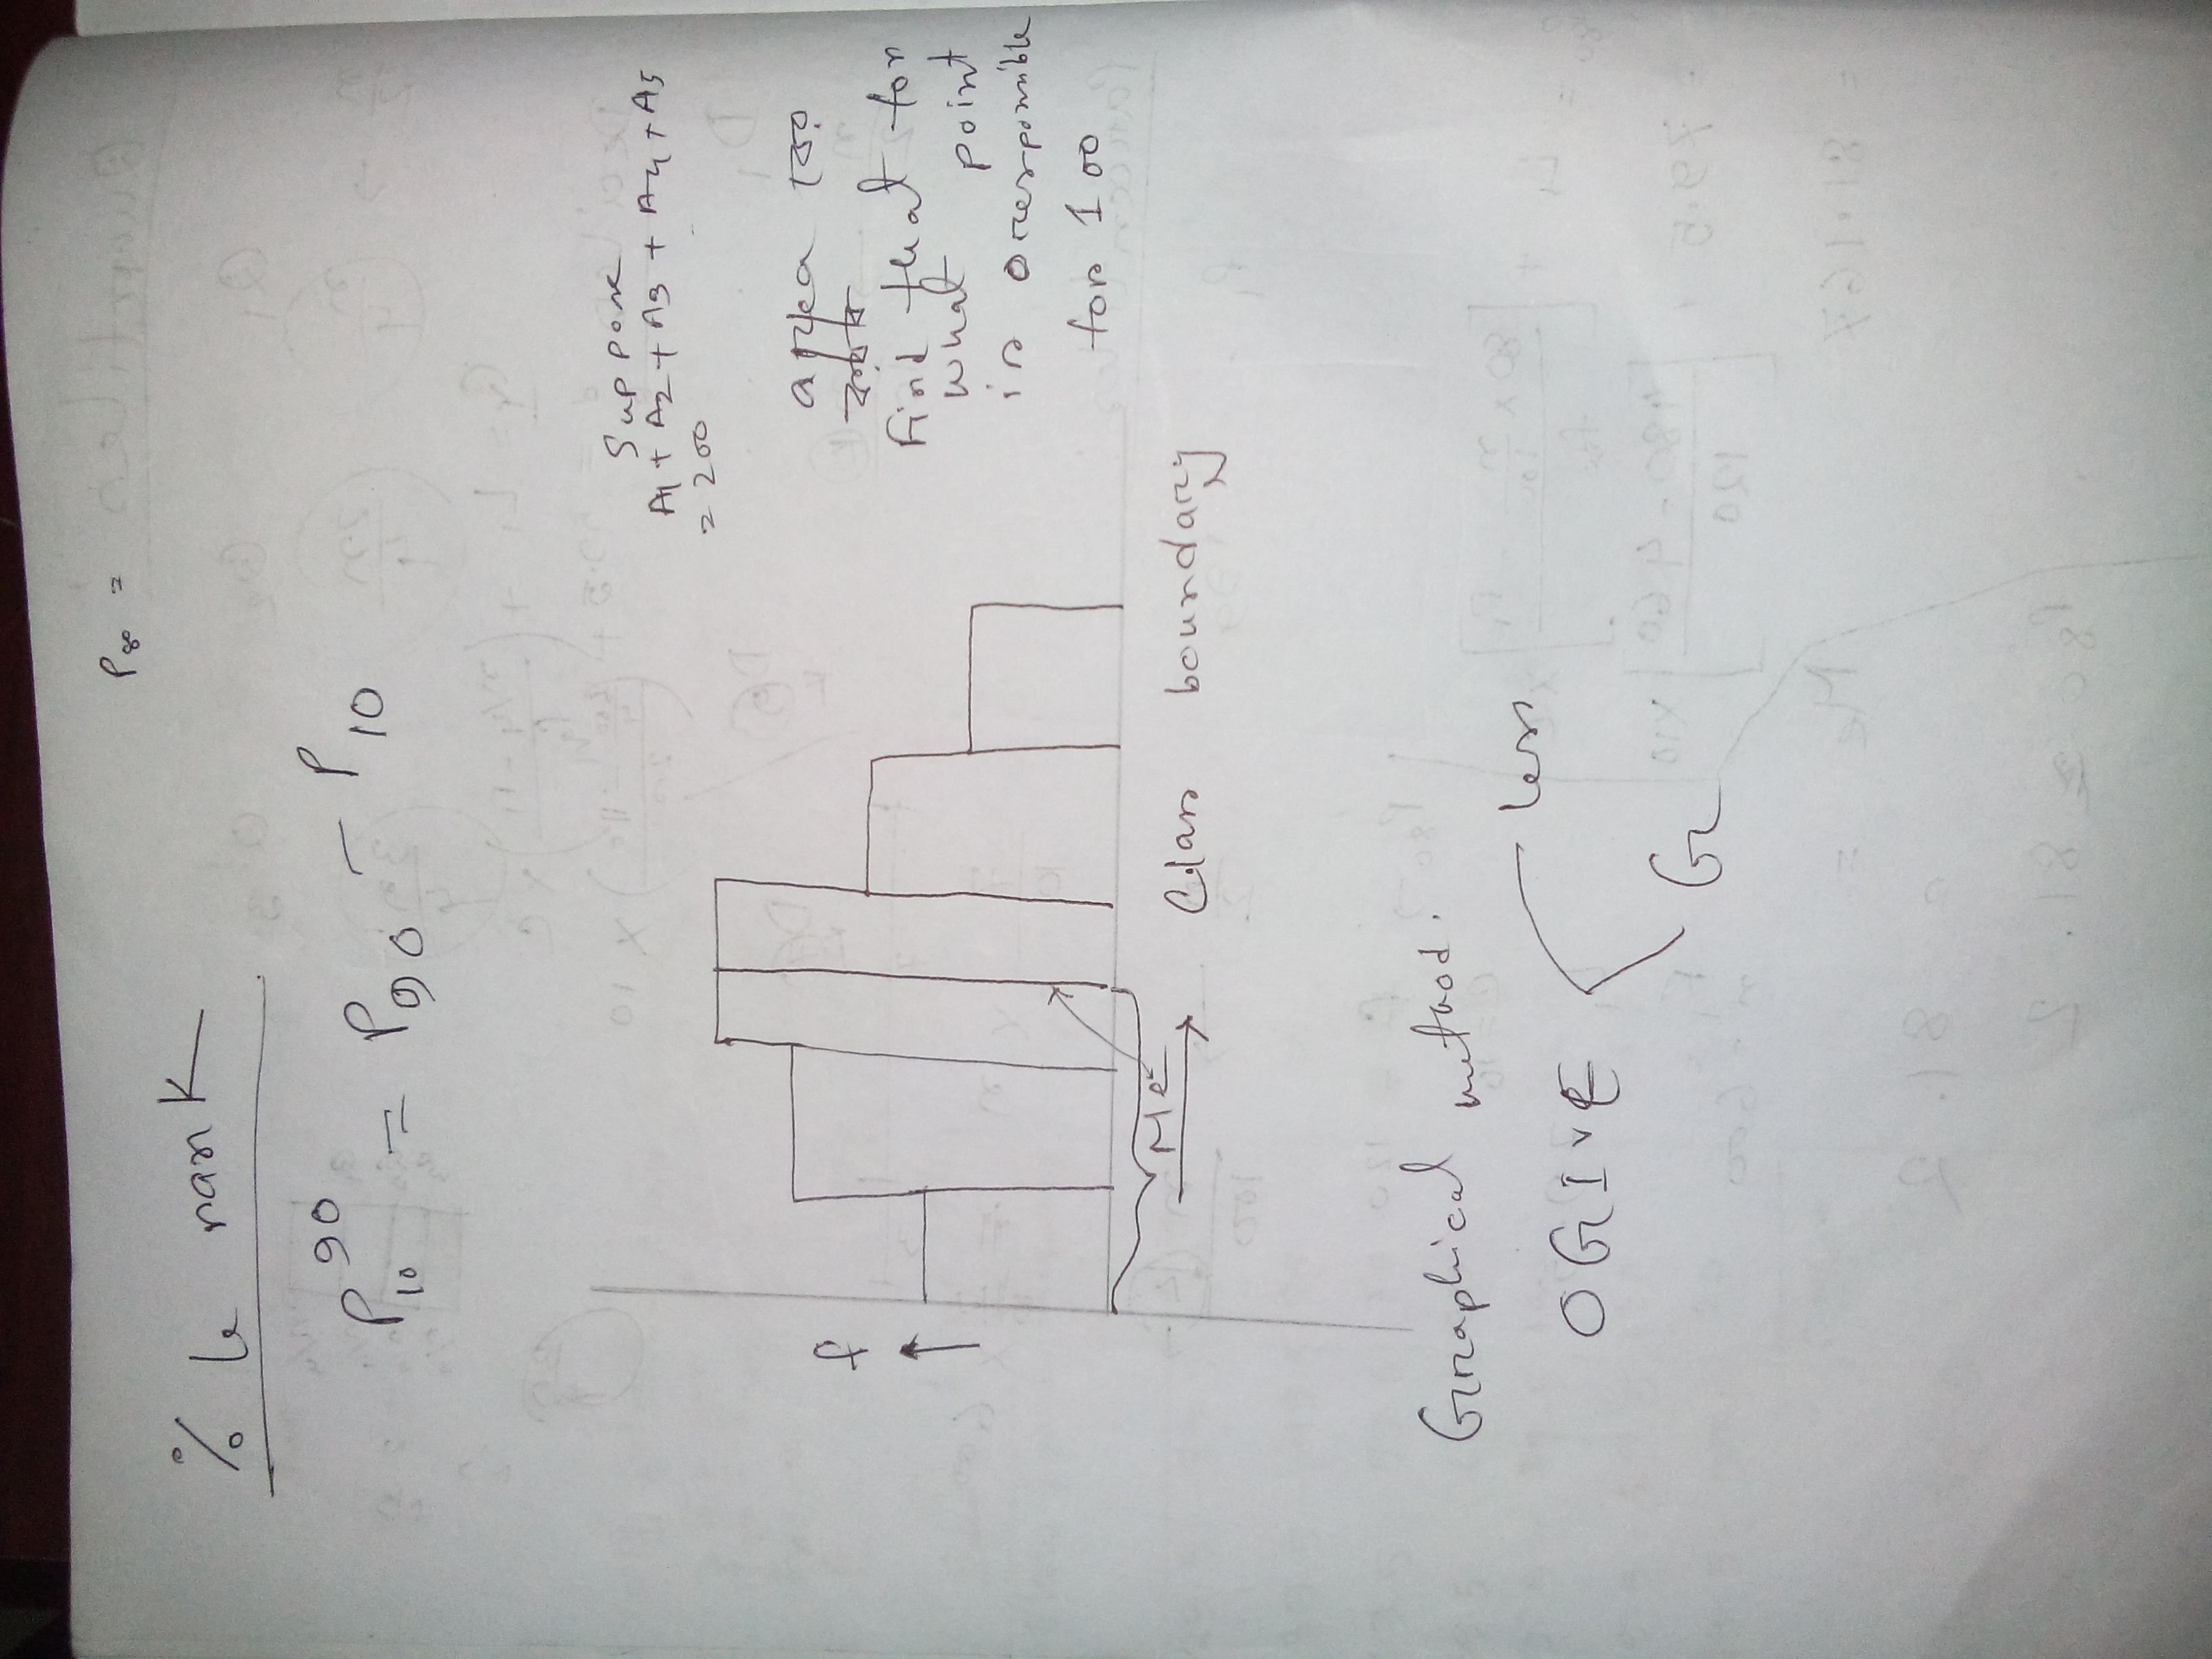 P80 =
%le rank
P10^90 = P90 - P10
Suppose
A1 + A2 + A3 + A4 + A5
= 200
area
find that for
what point
is responsible
for 100
f
Me
Class boundary
Graphical method.
OGIVE
less
G